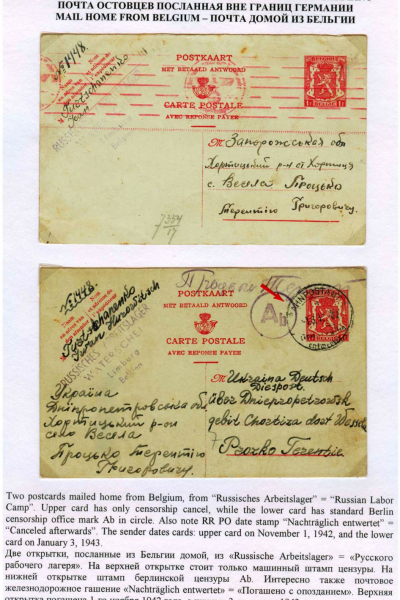 ПОЧТА ОСТОВЦЕВ ПОСЛАННАЯ ВНЕ ГРАНИЦ ГЕРМАНИИ
MAIL HOME FROM BELGIUM – ПОЧТА ДОМОЙ ИЗ БЕЛЬГИИ
POSTKAART
MET BETAALD ANTWOORD
CARTE POSTALE
AVEC REPONSE PAYEE
Запорожська обл
Хортицький р-н ст Хортиця
с. Весела Процько
Терентію Григоровичу.
7354
17
POSTKAART
MET BETAALD ANTWOORD
CARTE POSTALE
AVEC REPONSE PAYEE
Ab
RUSSISCHES ARBEITSLAGER
WATERSCHEI
Limburg
Belgien
Ukraina Deutsch
Dienstpost
Chortiza dorf Wessela
Prozko Terentie
Україна
Дніпропетровська об
Хортицький р-он
село Весела
Процько Терентію
Григоровичу.
Two postcards mailed home from Belgium, from “Russisches Arbeitslager” = “Russian Labor
Camp”. Upper card has only censorship cancel, while the lower card has standard Berlin
censorship office mark Ab in circle. Also note RR PO date stamp “Nachträglich entwertet” =
“Canceled afterwards”. The sender dates cards: upper card on November 1, 1942, and the lower
card on January 3, 1943.
Две открытки, посланные из Бельгии домой, из «Russische Arbeitslager» = «Русского
рабочего лагеря». На верхней открытке стоит только машинный штамп цензуры. На
нижней открытке штамп берлинской цензуры Ab. Интересно также почтовое
железнодорожное гашение «Nachträglich entwertet» = «Погашено с опозданием». Верхняя